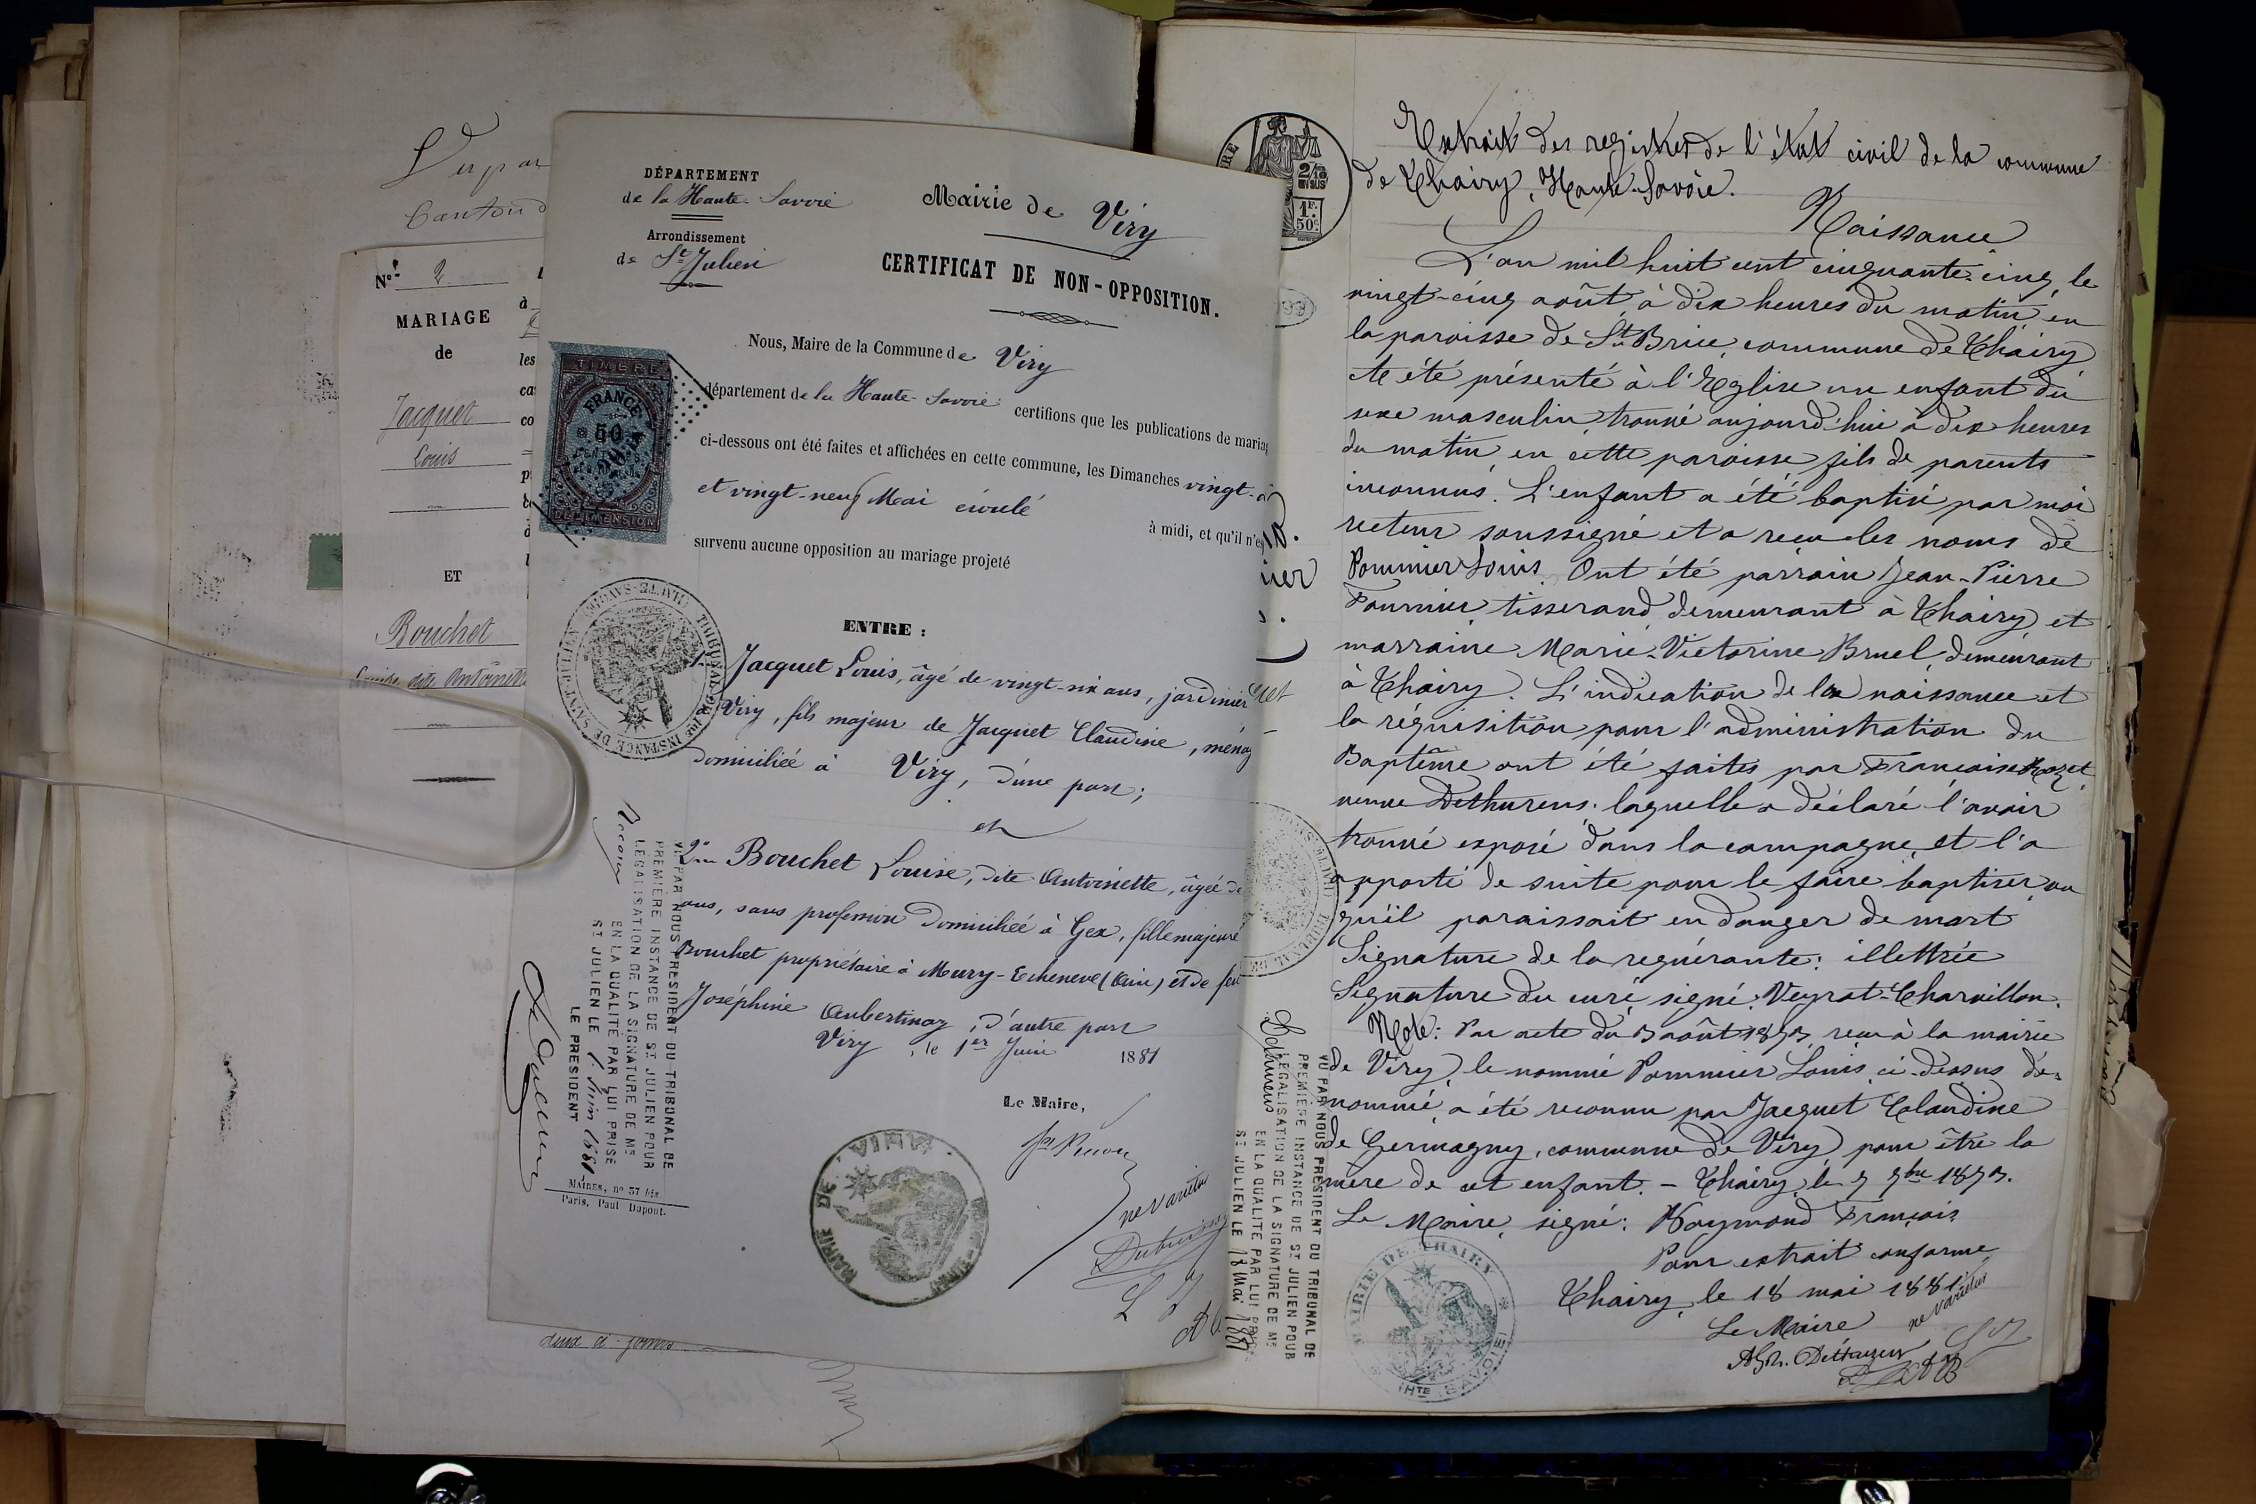 Canton d
N° 2
MARIAGE
de
Jacquet
Louis
ET
Bouchet
Louise dite Antoinette
DÉPARTEMENT
de la Haute-Savoie
Arrondissement
de St Julien
Mairie de Viry
CERTIFICAT DE NON-OPPOSITION.
Nous, Maire de la Commune de Viry
département de la Haute-Savoie certifions que les publications de maria
ci-dessous ont été faites et affichées en cette commune, les Dimanches vingt-
et vingt-neuf Mai écoulé à midi, et qu'il n'e
survenu aucune opposition au mariage projeté
ENTRE :
1° Jacquet Louis, âgé de vingt-six ans, jardinier
Viry, fils majeur de Jacquet Claudine, ménag
domiciliée à Viry, d'une part;
et
2° Bouchet Louise, dite Antoinette, âgée de
ans, sans profession domiciliée à Gex, fille majeure
Bouchet propriétaire à Mury-Echeneve (Ain) et de feu
Joséphine Aubertinoz, d'autre part
Viry, le 1er Juin 1881
Le Maire,
ne varietur
TIMBRE
FRANCE
50
DIMENSION
VU PAR NOUS PRESIDENT DU TRIBUNAL DE
PREMIERE INSTANCE DE ST JULIEN POUR
LEGALISATION DE LA SIGNATURE DE MR
EN LA QUALITE PAR LUI PRISE
ST JULIEN LE 1 Juin 1881
LE PRESIDENT
MAIRES, n° 57 bis
Paris, Paul Dupont.
MAIRIE DE VIRY
2/10
EN SUS
1F.
50c.
Extrait des registres de l'état civil de la commune
de Thairy, Haute-Savoie.
Naissance
L'an mil huit cent cinquante-cinq, le
vingt-cinq août, à dix heures du matin en
la paroisse de St Brice, commune de Thairy
a été présenté à l'Eglise un enfant du
sexe masculin, trouvé aujourd'hui à dix heures
du matin, en cette paroisse fils de parents
inconnus. L'enfant a été baptisé par moi
recteur soussigné et a reçu les noms de
Pommier Louis. Ont été parrain Jean-Pierre
Fournier, tisserand, demeurant à Thairy, et
marraine Marie-Victorine Bruel, demeurant
à Thairy. L'indication de la naissance et
la réquisition pour l'administration du
Baptême ont été faites par Françoise
veuve Dethurens, laquelle a déclaré l'avoir
trouvé exposé dans la campagne, et l'a
apporté de suite pour le faire baptiser, vu
qu'il paraissait en danger de mort
Signature de la requérante: illettrée
Signature du curé signé: Veyrat-Charvillon.
Note: Par acte du août reçu à la mairie
de Viry, le nommé Pommier Louis, ci-dessus dé-
nommé, a été reconnu par Jacquet Claudine
de Germagny, commune de Viry, pour être la
mère de cet enfant. - Thairy, le
Le Maire, signé: Raymond François
Pour extrait conforme
Thairy, le 18 mai 1881
ne varietur
Le Maire
MAIRIE DE THAIRY
(HTE SAVOIE)
VU PAR NOUS PRESIDENT DU TRIBUNAL DE
PREMIERE INSTANCE DE ST JULIEN POUR
LEGALISATION DE LA SIGNATURE DE MR
Dethurens EN LA QUALITE PAR LUI PRISE
ST JULIEN LE 18 Mai 1881